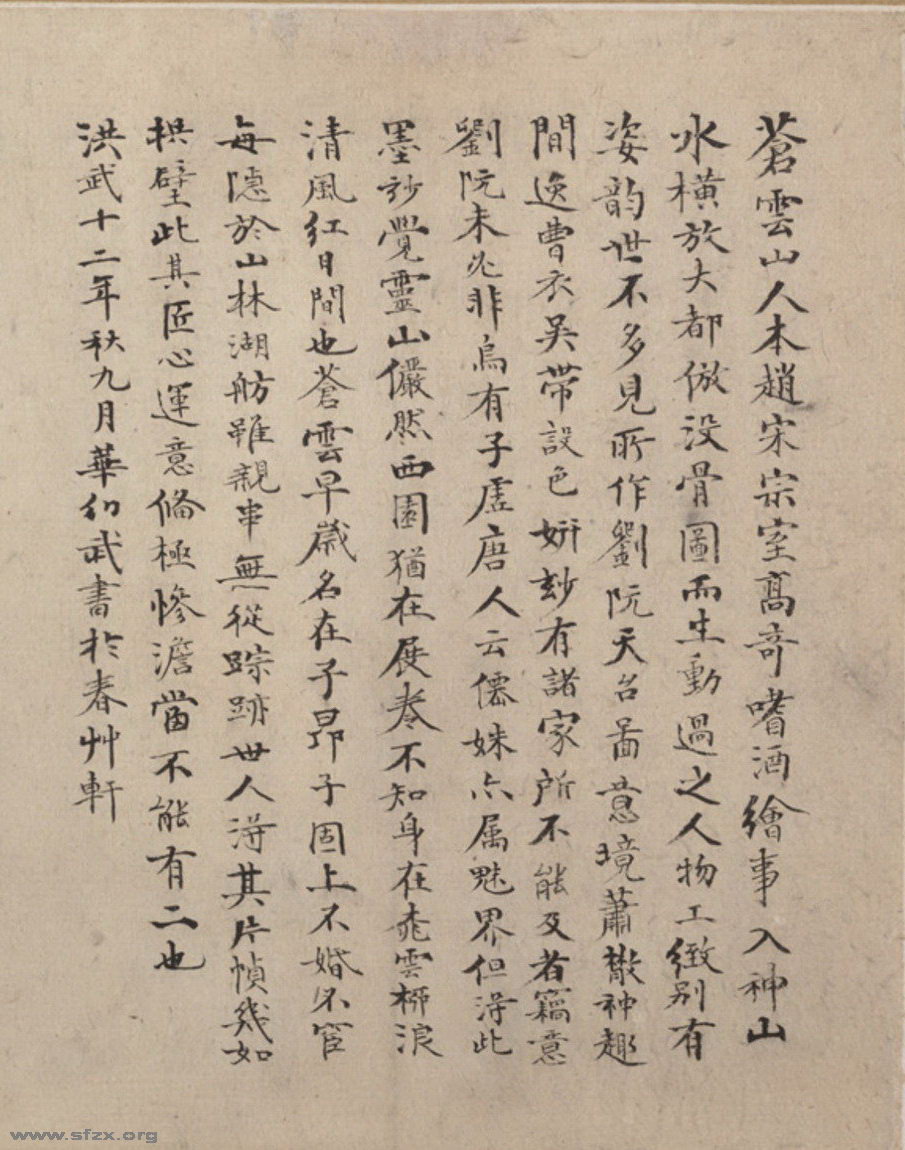 蒼雲山人本趙宋宗室高奇嗜酒繪事入神山
水橫放大都倣没骨圖而生動過之人物工緻別有
姿韵世不多見所作劉阮天台啚意境蕭散神趣
間逸曹衣吴带設色妍玅有諸家所不能及者竊意
劉阮未必非烏有子虛唐人云僊姝亦属魅界但淂此
墨妙覺靈山儼然西園猶在展巻不知身在乖雲桺浪
清風紅日間也蒼雲早歲名在子昂子固上不婚不宦
每隱於山林湖舫雖親串無從踪跡世人淂其片幀幾如
拱璧此其匠心運意脩極慘澹當不能有二也
洪武十二年秋九月華幼武書於春艸軒
www.sfzx.org